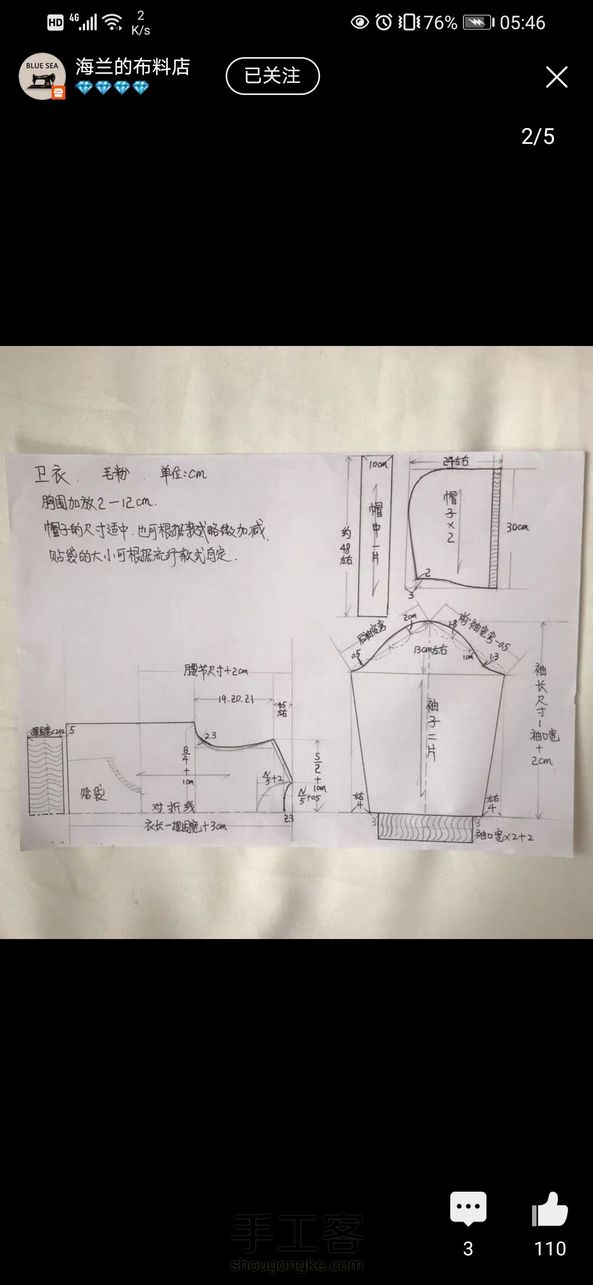 HD 4G 2 K/s 76% 05:46
BLUE SEA
海兰的布料店
已关注
2/5
卫衣. 毛粉. 单位:cm
胸围加放2一12cm.
帽子的尺寸适中.也可根据款式略微加减.
贴袋的大小可根据流行款式自定.
约48左右
10cm
帽中一片
24左右
帽子×2
30cm
2
3
后袖窿弯
2cm
前袖窿弯-0.5
1.8
0.5
13cm左右
1cm
1.3
袖子二片
袖长尺寸-袖口宽+2cm
左右4
左右4
3
3
袖口宽×2+2
腰节尺寸+2cm
19.20.21
5
2.3
B/4+1cm
贴袋
对折线
N/5+2
N/5+0.5
S/2+1cm
2.3
衣长一摆围宽+3cm
3
110
手工客
shougongke.com